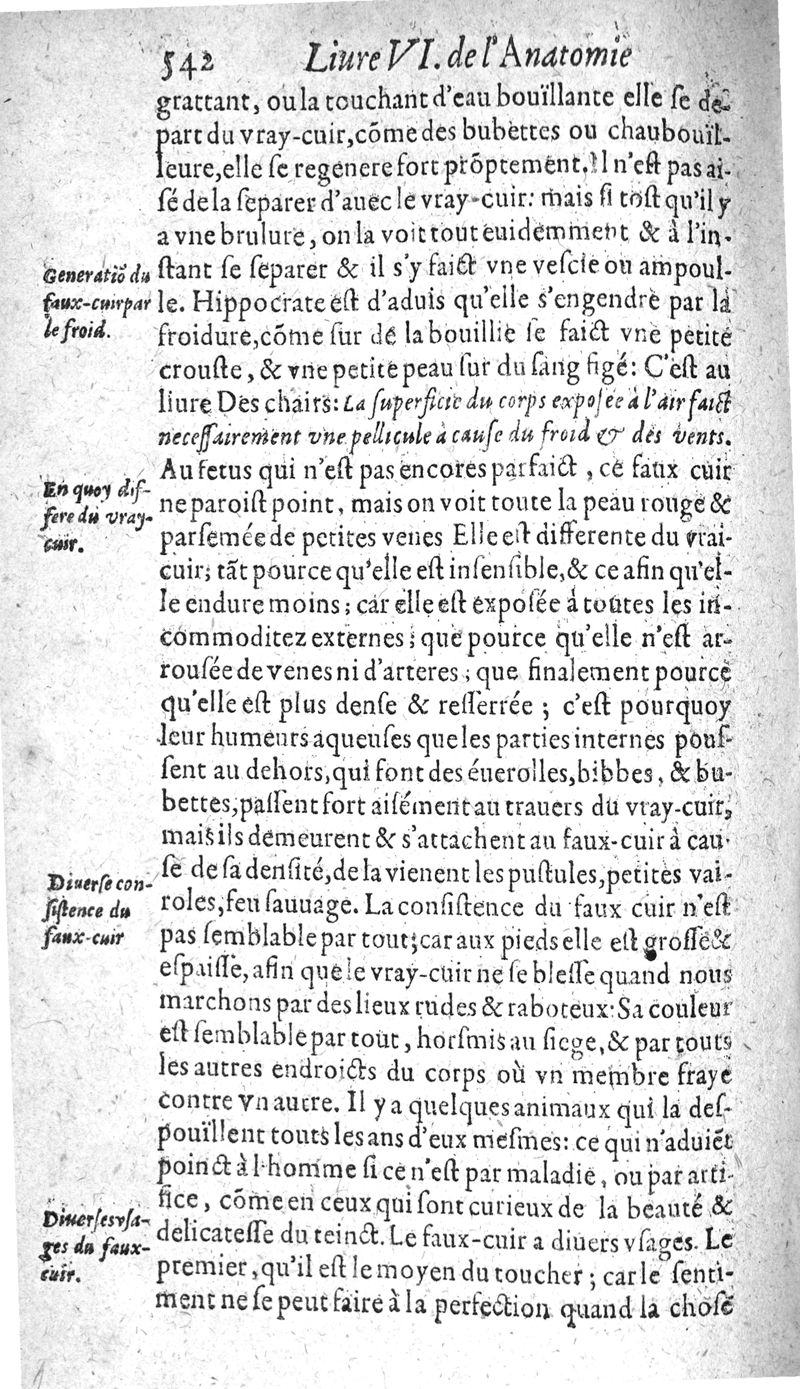 542 Liure VI. de l'Anatomie
grattant, ou la touchant d'eau bouïllante elle se de-
part du vray-cuir, cõme des bubettes ou chaubouïl-
leure, elle se regenere fort prõptement. Il n'est pas ai-
sé de la separer d'auec le vray-cuir: mais si tost qu'il y
a vne brulure, on la voit tout euidemment & à l'in-
Generatiõ du
faux-cuir par
le froid.
stant se separer & il s'y faict vne vescie ou ampoul-
le. Hippocrate est d'aduis qu'elle s'engendre par la
froidure, cõme sur de la bouillie se faict vne petite
crouste, & vne petite peau sur du sang figé: C'est au
liure Des chairs: La superficie du corps exposée à l'air faict
necessairement vne pellicule à cause du froid & des vents.
Au fetus qui n'est pas encores parfaict, ce faux cuir
En quoy dif-
fere du vray-
cuir.
ne paroist point, mais on voit toute la peau rouge &
parsemée de petites venes Elle est differente du vrai-
cuir; tãt pource qu'elle est insensible, & ce afin qu'el-
le endure moins; car elle est exposée à toutes les in-
commoditez externes; que pource qu'elle n'est ar-
rousée de venes ni d'arteres; que finalement pource
qu'elle est plus dense & resserrée; c'est pourquoy
leur humeurs aqueuses que les parties internes pous-
sent au dehors, qui font des éuerolles, bibbes, & bu-
bettes, passent fort aisément au trauers du vray-cuir,
mais ils demeurent & s'attachent au faux-cuir à cau-
Diuerse con-
sistence du
faux-cuir
se de sa densité, de la vienent les pustules, petites vai-
roles, feu sauuage. La consistence du faux cuir n'est
pas semblable par tout; car aux pieds elle est grosse &
espaisse, afin que le vray-cuir ne se blesse quand nous
marchons par des lieux rudes & raboteux: Sa couleur
est semblable par tout, horsmis au siege, & par touts
les autres endroicts du corps où vn membre fraye
contre vn autre. Il y a quelques animaux qui la des-
pouïllent touts les ans d'eux mesmes: ce qui n'aduiẽt
poinct à l'homme si ce n'est par maladie, ou par arti-
Diuerses vsa-
ges du faux-
cuir.
fice, cõme en ceux qui sont curieux de la beauté &
delicatesse du teinct. Le faux-cuir a diuers vsages. Le
premier, qu'il est le moyen du toucher; car le senti-
ment ne se peut faire à la perfection quand la chose